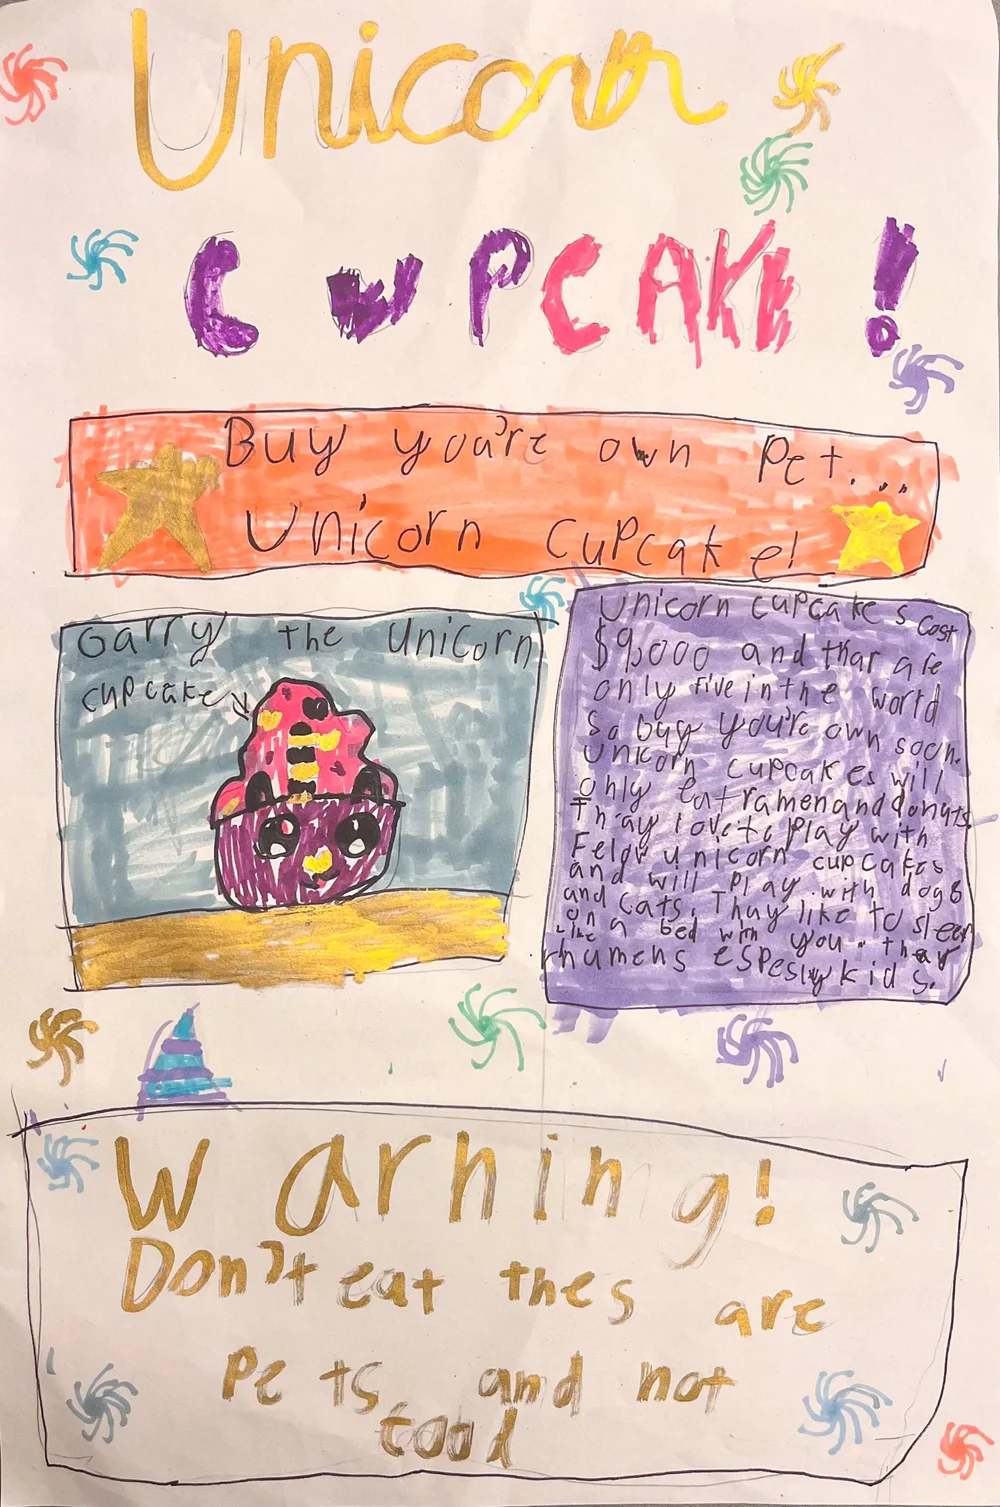 Unicorn
CUPCAKE!
Buy you're own Pet...
Unicorn cupcake!
Garry the Unicorn
cupcake
Unicorn cupcakes cost
$9,000 and thar are
only five in the world
so buy you're own soon.
Unicorn cupcakes will
only eat ramen and donuts
Thay love to play with
Felow unicorn cupcakes
and will play with dogs
and cats. Thay like to sleep
on a bed with you. thay
like
humens espesly kids.
Warning!
Don't eat thes are
Pets and not
food